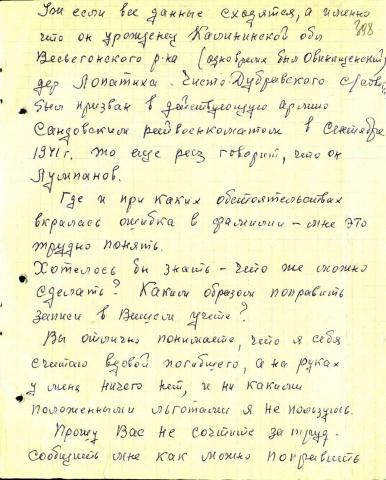 398
Так если все данные сходятся, а именно
что он уроженец Калининской обл
Весьегонского р-на (одно время был Овинищенский)
дер Лопатиха. Чисто-Дубравского с/сов.
был призван в действующую армию
Сандовским райвоенкоматом в сентябре
1941г. то еще раз говорит, что он
Лумпанов.
Где и при каких обстоятельствах
вкралась ошибка в фамилии - мне это
трудно понять.
Хотелось бы знать - что же можно
сделать? Каким образом поправить
записи в Вашем учете?
Вы отлично понимаете, что я себя
считаю вдовой погибшего, а на руках
у меня ничего нет, и ни какими
положенными льготами я не пользуюсь.
Прошу Вас не сочтите за труд.
сообщить мне как можно поправить